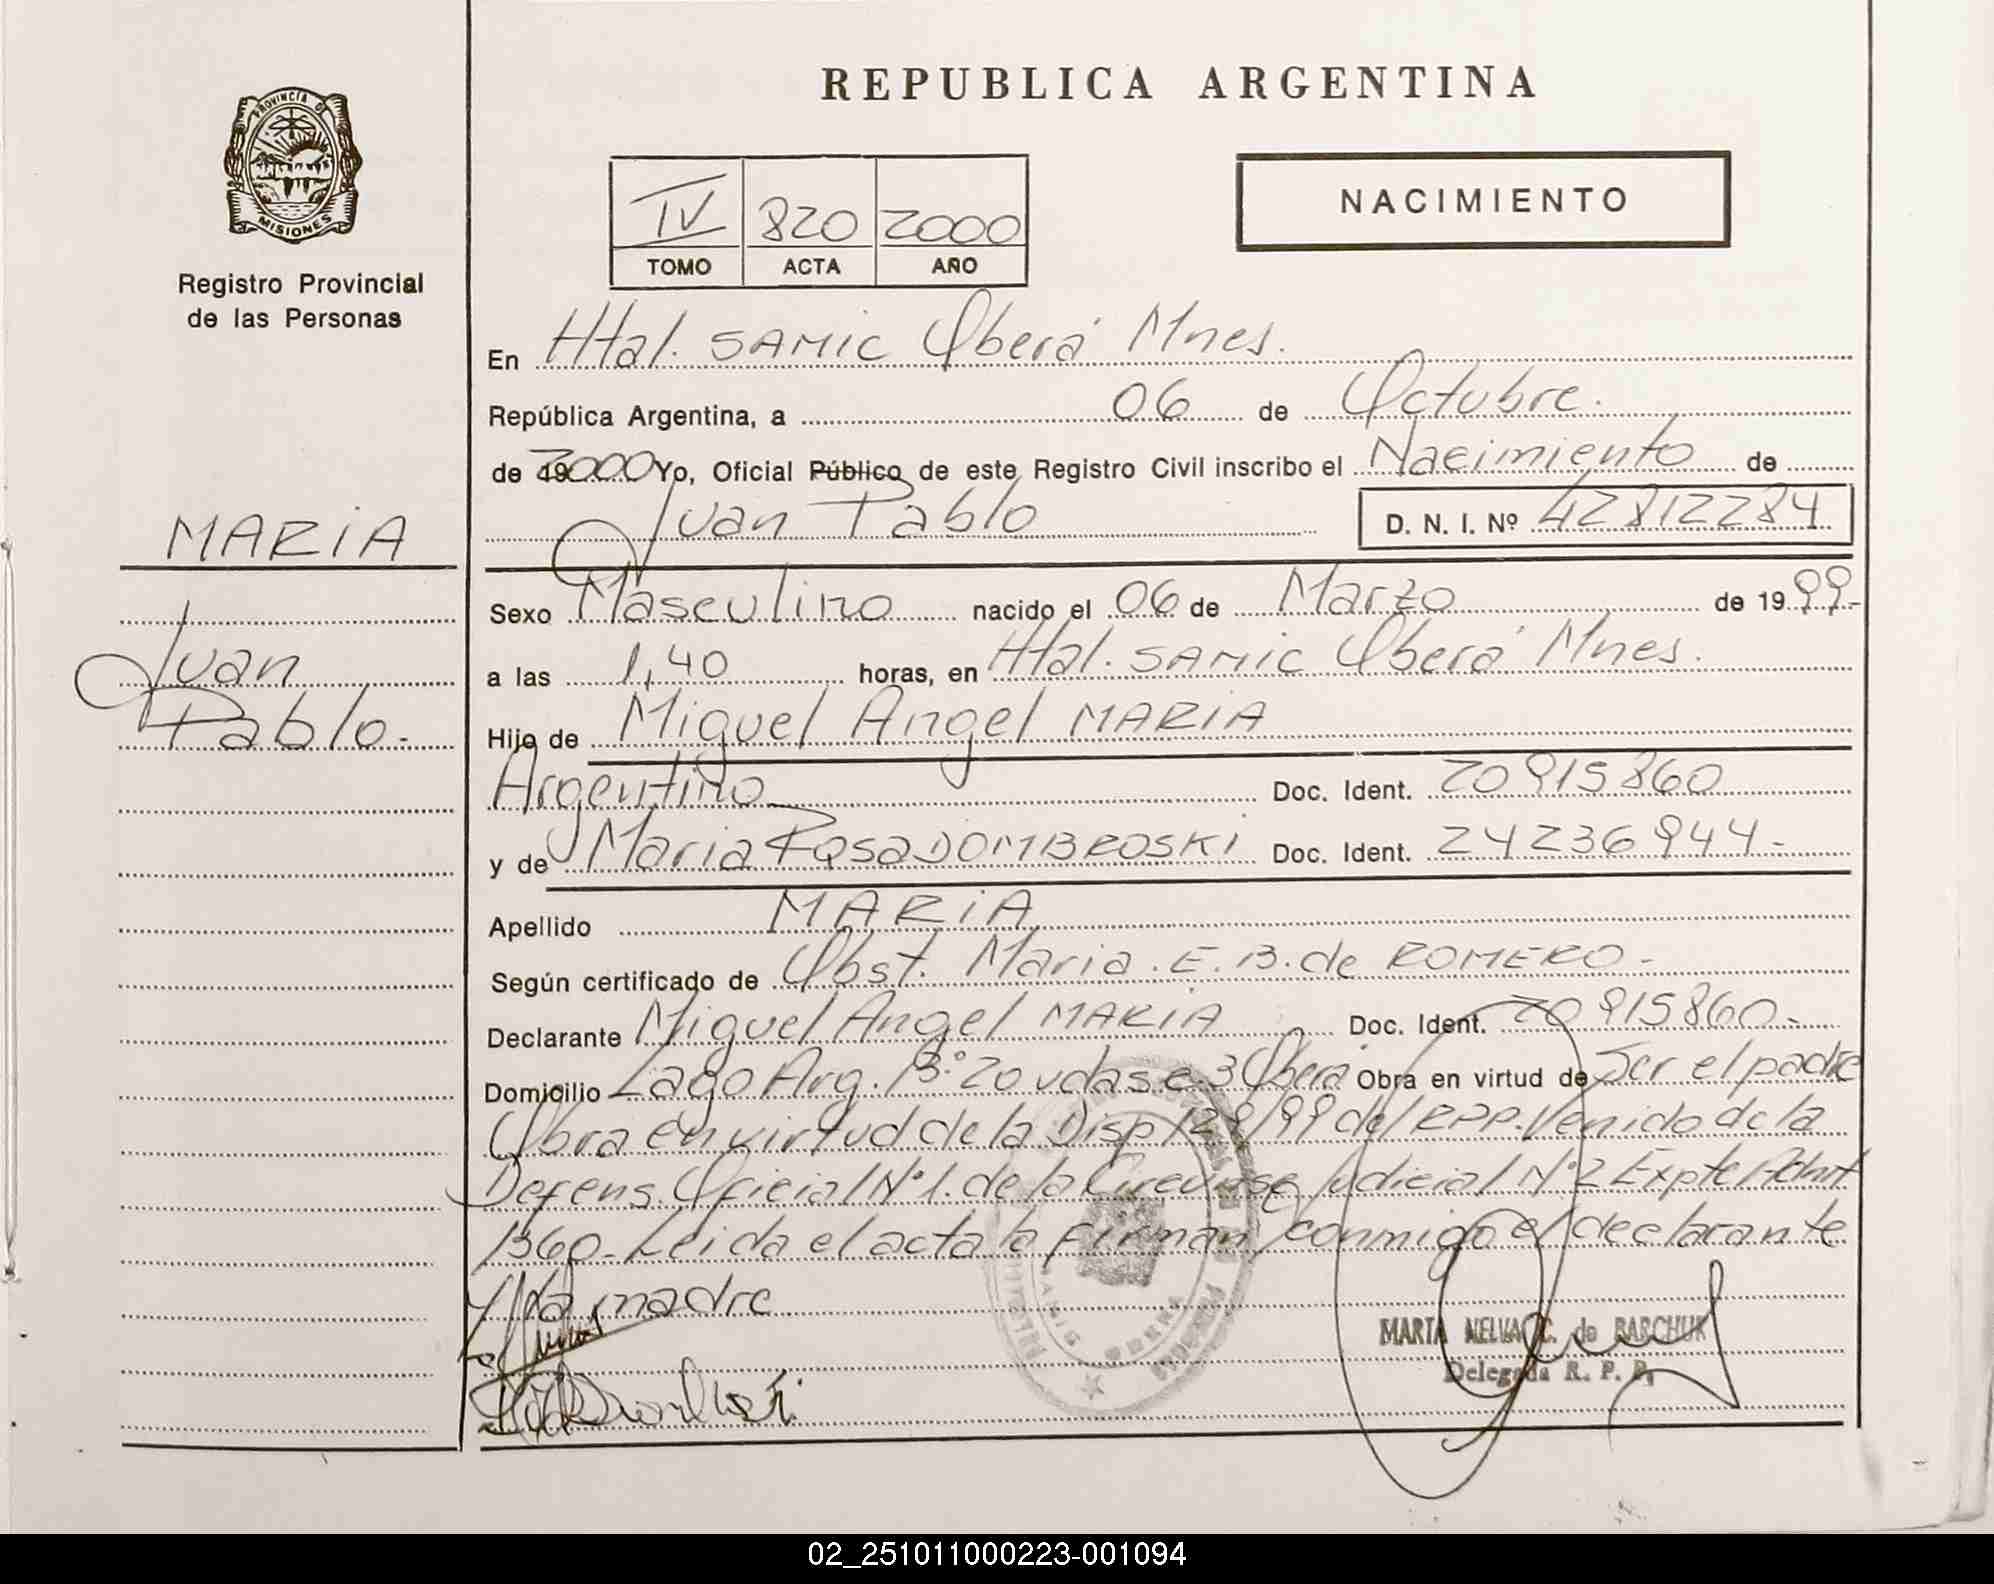 REPUBLICA ARGENTINA
PROVINCIA DE
MISIONES
Registro Provincial
de las Personas
NACIMIENTO
IV 820 2000
TOMO ACTA AÑO
En Htal. SAMIC Oberá Mnes.
República Argentina, a 06 de Octubre.
de 2000 Yo, Oficial Público de este Registro Civil inscribo el Nacimiento de
Juan Pablo D. N. I. Nº 42812284
MARIA
Juan
Pablo.-
Sexo Masculino nacido el 06 de Marzo de 1999.-
a las 1,40 horas, en Htal. SAMIC Oberá Mnes.
Hijo de Miguel Angel MARIA
Argentino Doc. Ident. 20915860
y de Maria Rosa DOMBROSKI Doc. Ident. 24236944.-
Apellido MARIA
Según certificado de Obst. Maria. E. B. de ROMERO.-
Declarante Miguel Angel MARIA Doc. Ident. 20915860.-
Domicilio Lago Arg. Bº 20 vdas e. 3 Oberá Obra en virtud de Ser el padre
Obra en virtud de la Disp 128/99 del RPP. Venido de la
Defens. Oficial Nº 1. de la Circunsc Judicial Nº 2 Expte Admt
1360.- Leida el acta la firman conmigo el declarante
y la madre
MARTA NELVA C. de BARCHUK
Delegada R. P. P.
02_251011000223-001094